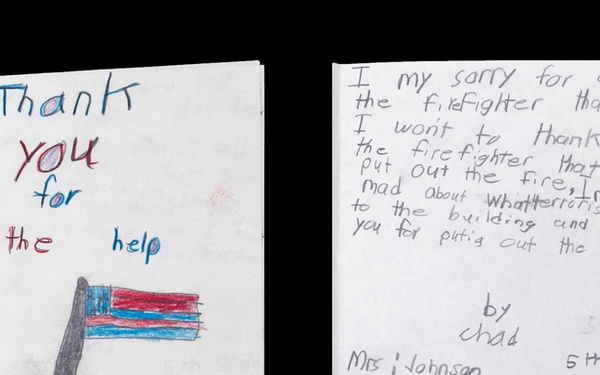 Thank
you
for
the help
I my sorry for
the firefighter tha
I won't to thank
the firefighter that
put out the fire, I
mad about what terroris
to the building and
you for putig out the
by
chad
Mrs. Johnson 5th